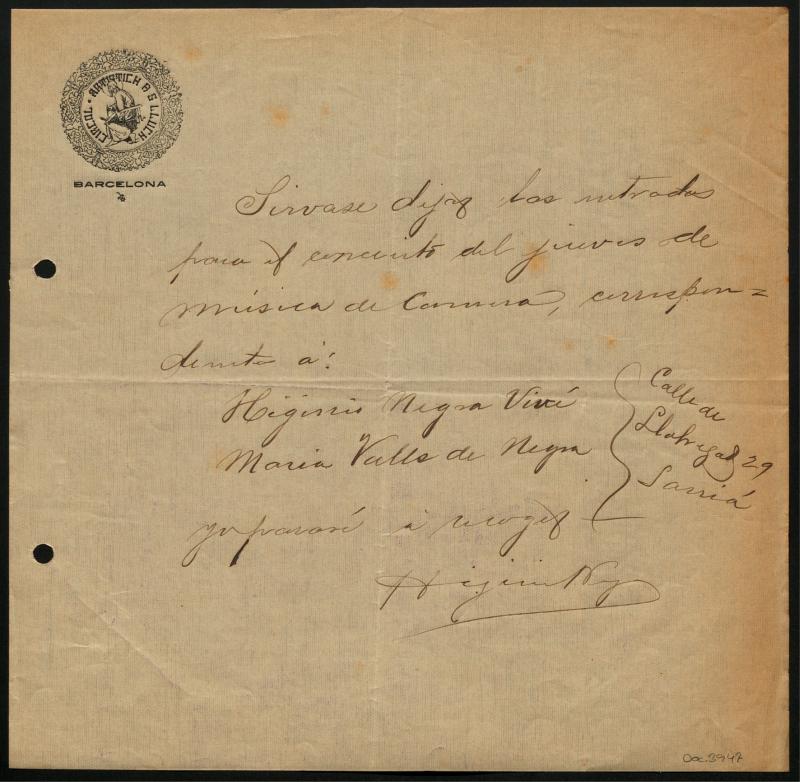 CERCOL · ARTISTICH D S LLUCH
BARCELONA
Sirvase dejar las entradas
para el concierto del jueves de
música de Camera, correspon=
diente á:
Higinio Negra Vivé
Maria Valls de Negra
Calle de
Llobregat 29
Sarriá
yo pasaré á recoger
Higinio Negra
Doc. 3947